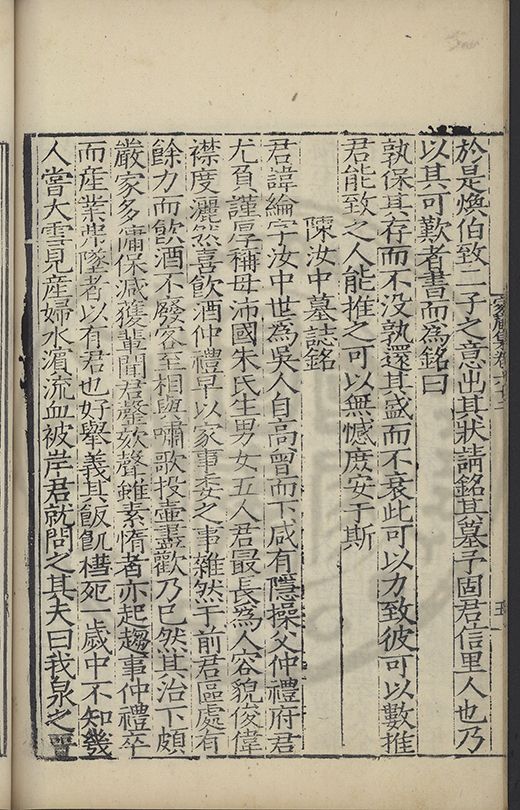 於是煥伯致二子之意出其狀請銘其墓予固君信里人也乃
以其可歎者書而為銘曰
孰保其存而不没孰還其盛而不衰此可以力致彼可以數推
君能致之人能推之可以無憾庶安于斯
陳汝中墓誌銘
君諱綸字汝中世為吳人自高曾而下咸有隱操父仲禮府君
尤負謹厚稱母沛國朱氏生男女五人君最長為人容貌俊偉
襟度灑然喜飲酒仲禮早以家事委之事雜然于前君區處有
餘力而飲酒不廢客至相與嘯歌投壺盡歡乃已然其治下頗
嚴家多傭保減獲輩聞君謦欬聲雖素惰者亦起趨事仲禮卒
而産業弗墜者以有君也好舉義其飯飢槥死一歲中不知幾
人嘗大雪見産婦水濵流血被岸君就問之其夫曰我泉之晋
家藏集卷六十二
五